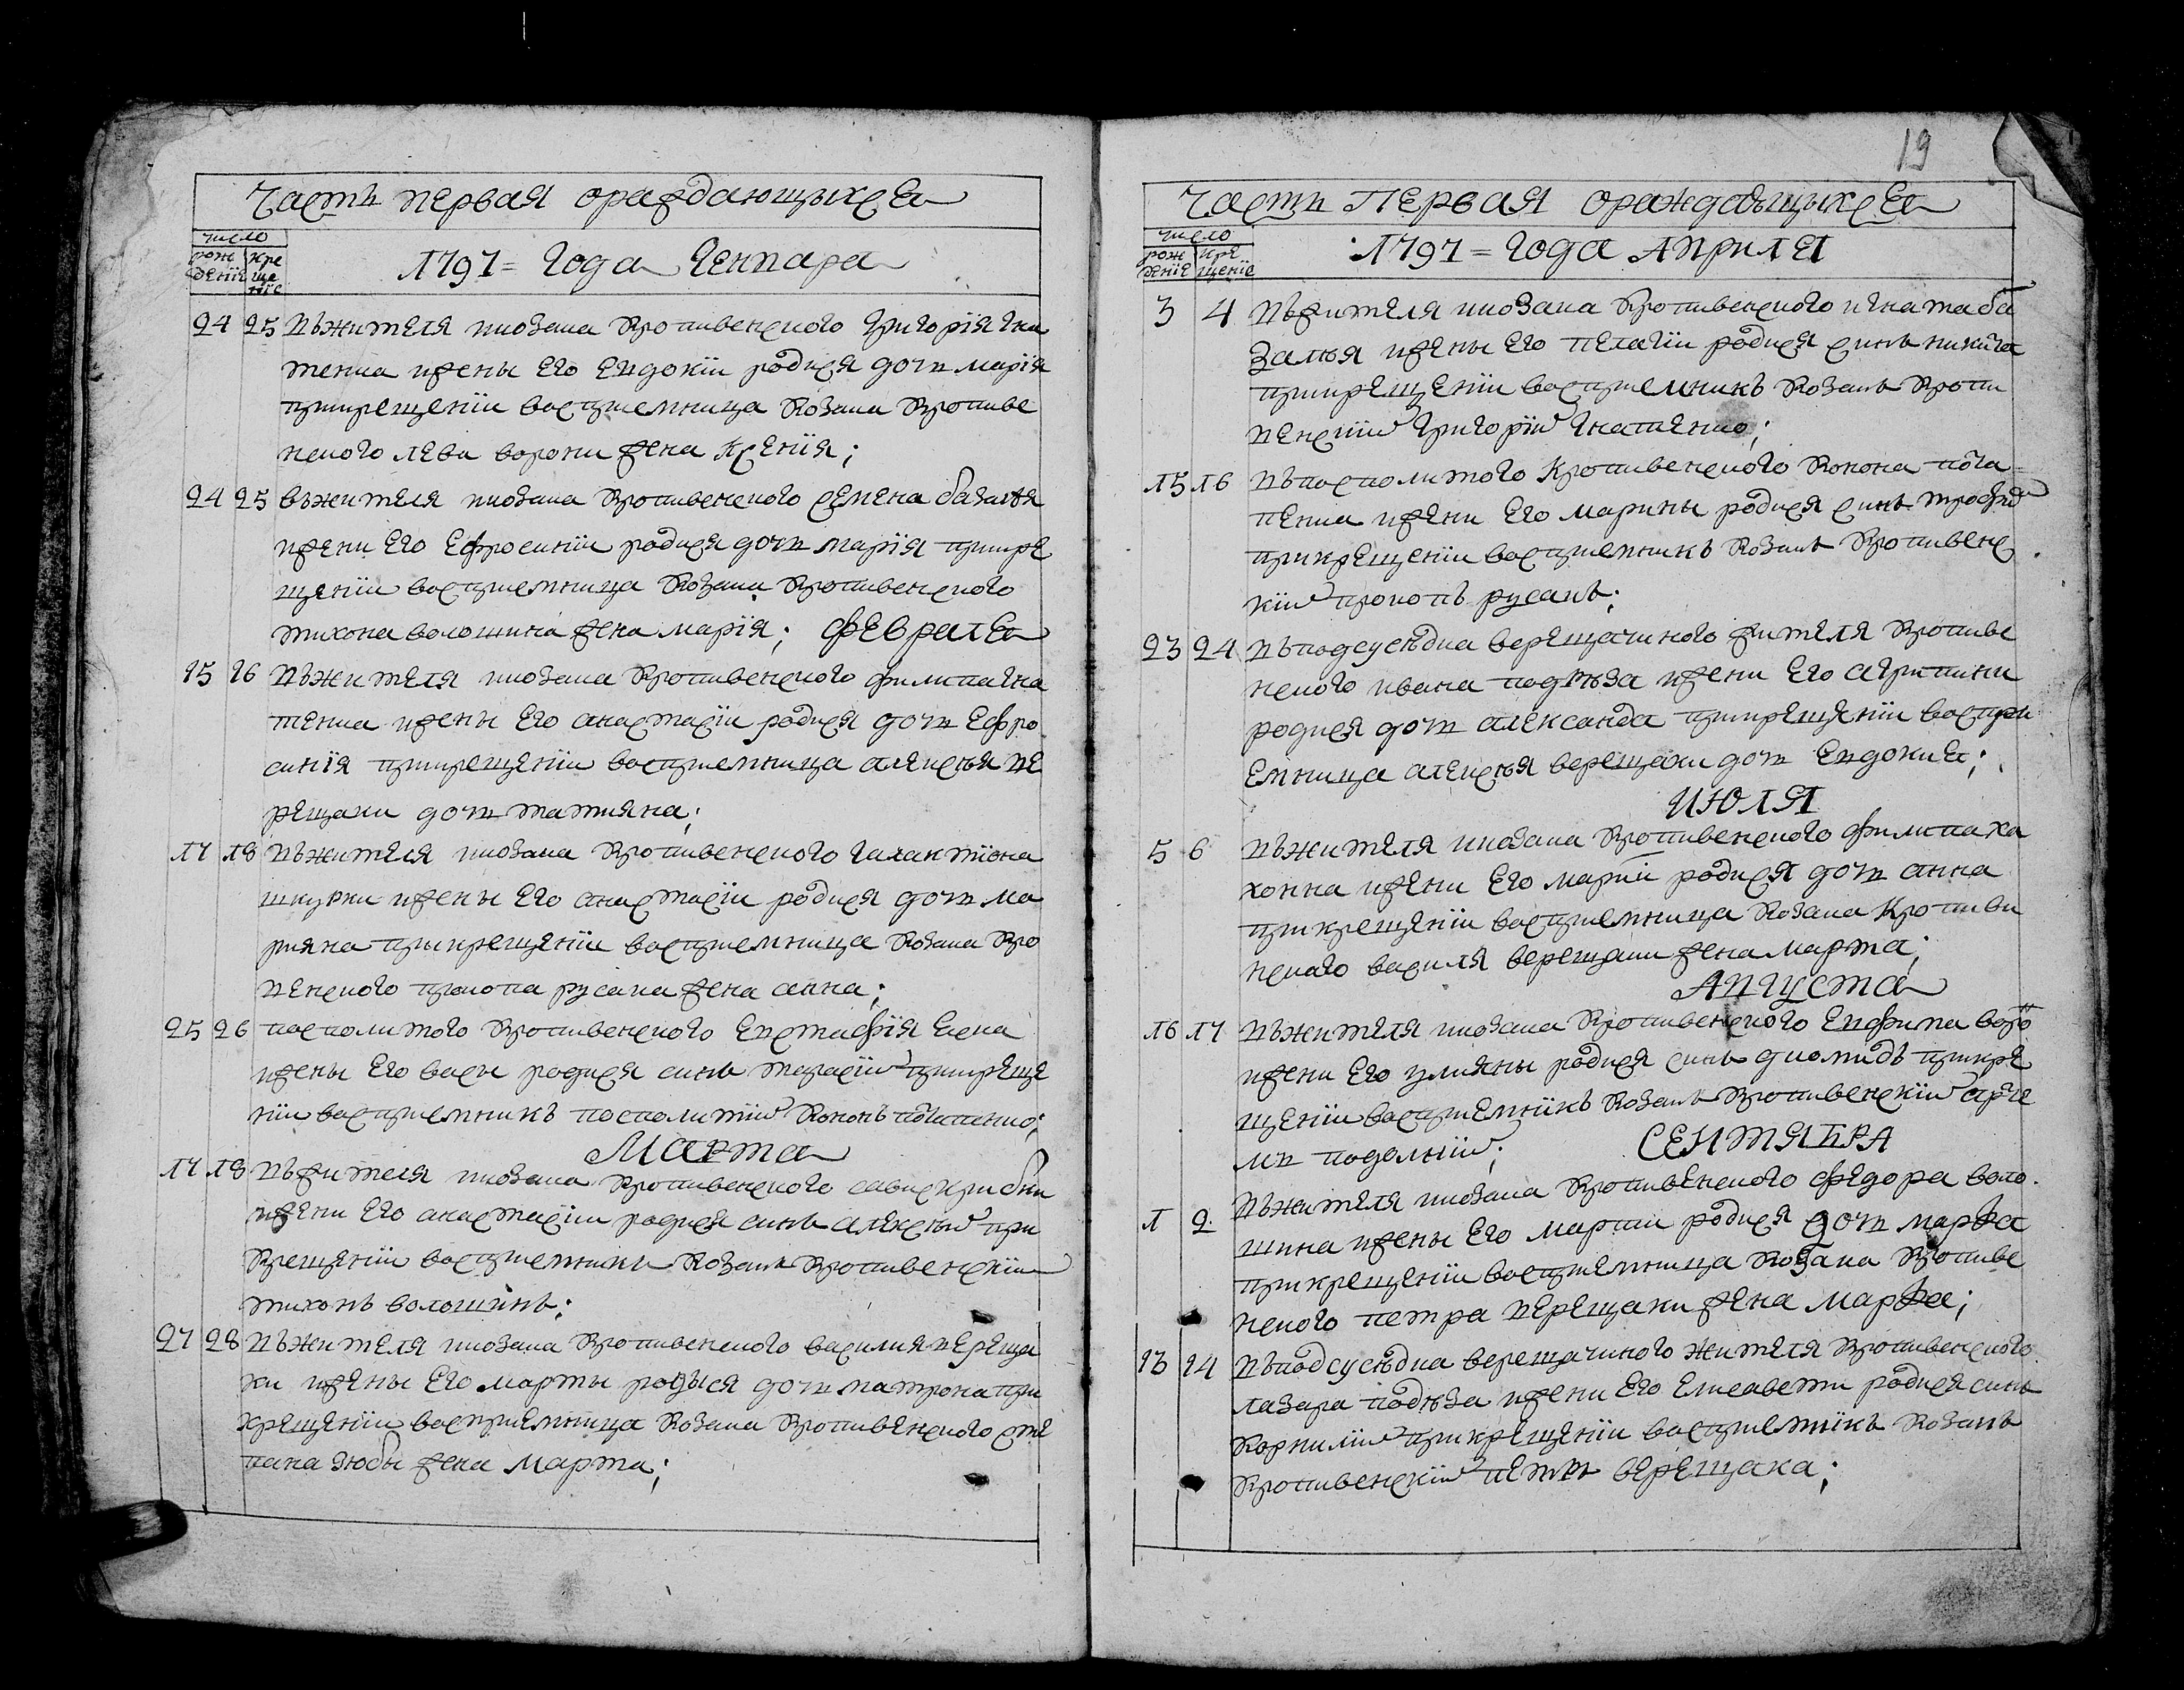 19
Часть первая ораждающыхся
число
рож кре
дение ще
ние
1797 = Года Генваря
24 25 Въжителя козака Кропивенского Григорія Гна
тенка ижены Его Евдокіи родися дочь марія
прикрещеніи восприемница козака Кропиве
нского Лева ворони жена Ксенія;
24 25 въжителя козака Кропивенского семена базалѣя
ижени Его Ефросиніи родися дочь марія прикре
щеніи восприемница козака Кропивенского
тихона волошина жена марія; февраля
15 16 Въжителя козака Кропивенского филипа гна
тенка ижены Его анастасіи родися дочь Ефро
синія прикрещеніи восприемница алексѣя ве
рещаки дочь татияна;
17 18 Въжителя козака Кропивенского галактіона
шкурки ижены Его анастасіи родися дочь ма
рияна прикрещеніи восприемница козака Кро
венского прокопа русана жена анна;
25 26 посполитого Кропивенского Евстафія
ижены Его васы родися синъ тарасій прикреще
ніи восприемникъ посполитій кононъ потапенко;
Марта
17 18 Въжителя козака Кропивенского
ижени Его анастасіи родися синъ алексѣй при
крещеніи восприемникъ козакъ Кропивенскій
тихонъ волошинъ;
27 28 Въжителя козака Кропивенского василия вереща
ки ижены Его марты родыся дочь матрона при
крещеніи восприемница козака Кропивенского сте
пана зюбы жена Марта;
Часть Первая ораждающыхся
число
рож кре
дение щение
1797 = Года Априля
3 4 Въжителя козака Кропивенского игната ба
залѣя ижены Его пелагіи родися синъ никита
прикрещеніи восприемникъ козакъ Кропи
венскій Григорій Гнатенко;
15 16 Въпосполитого Кропивенского конона пота
пенка ижени Его марины родися синъ трофим
прикрещеніи восприемникъ козакъ Кропивенс
кій прокопъ русанъ;
23 24 Въподсусѣдка верещачиного жителя Кропиве
нского ивана ижени Его агрипини
родися дочь александа прикрещеніи воспри
Емница алексѣя верещаки дочь Евдокия;
ИЮЛЯ
5 6 Въжителя козака Кропивенского филипа ха
ижени Его маріи родися дочь анна
прикрещеніи восприемница козака Кропиви
нского василя верещаки жена марта;
Августа
16 17 Въжителя козака Кропивенского Евфима воро
ижени Его улияны родися синъ диомидъ прикре
щеніи восприемникъ козакъ Кропивенскій арте
мъ
СЕНТЯБРА
1 2 Въжителя козака Кропивенского федора воло
шина ижены Его марии родися дочь марфа
прикрещеніи восприемница козака Кропиве
нского петра верещаки жена марфа;
13 14 Въподсусѣдка верещачиного жителя Кропивенского
лазара ижени Его Елисавети родися синъ
корнилій прикрещеніи восприемникъ козакъ
Кропивенскій петръ верещака;